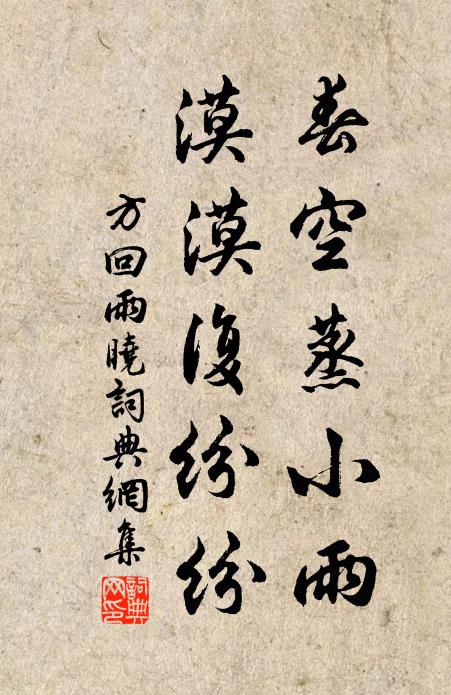 春空蒸小雨
漠漠復紛紛
方回雨曉詞典網集
詞典網印